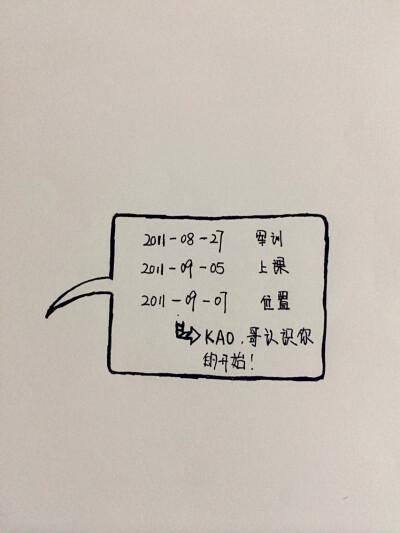 2011-08-27 军训
2011-09-05 上课
2011-09-07 位置
KAO,哥认识你
的开始!